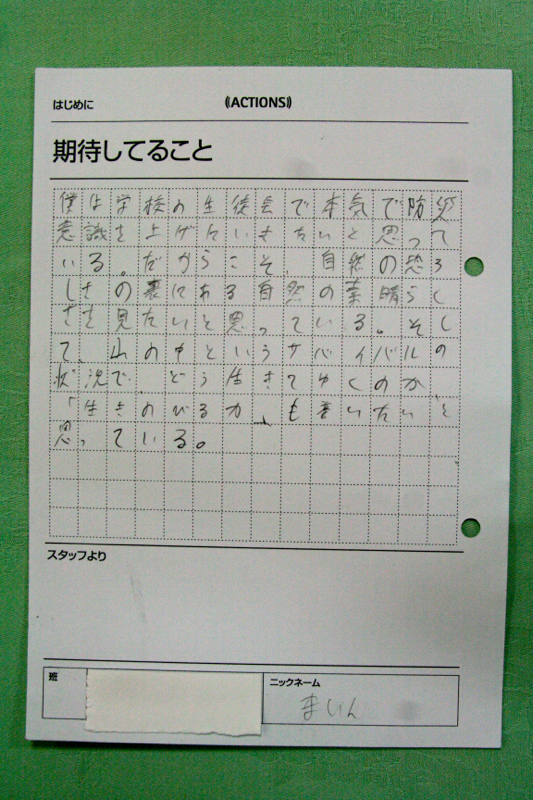 はじめに
⸨ACTIONS⸩
期待してること
僕は学校の生徒会で本気で防災
意識を上げたいきたいと思って
いる。だからこそ、自然の恐ろ
しさの裏にある自然の素晴らしく
さを見たいと思っている。そし
て、山の中というサバイバルの
状況で、どう生きてゆくのか、
「生きのびる力」も養いたいと
思っている。
スタッフより
班
ニックネーム
まいん